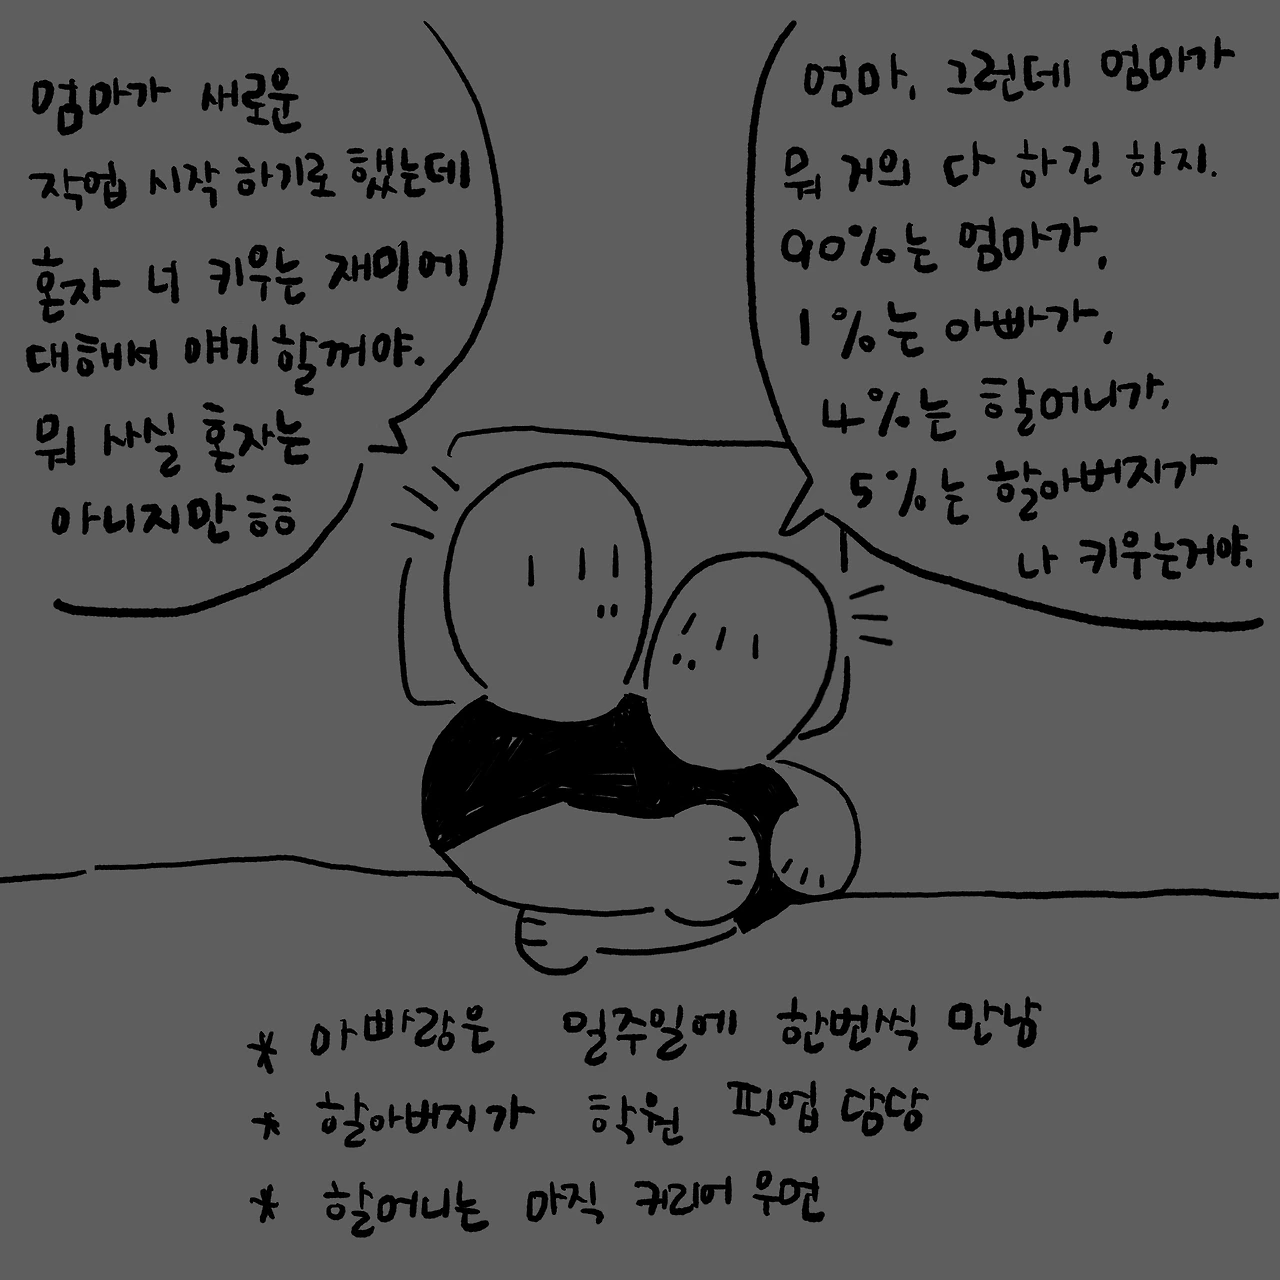 엄마가 새로운
작업 시작 하기로 했는데
혼자 너 키우는 재미에
대해서 얘기 할꺼야.
뭐 사실 혼자는
아니지만 흐흐
엄마, 그런데 엄마가
뭐 거의 다 하긴 하지.
90%는 엄마가,
1%는 아빠가,
4%는 할머니가,
5%는 할아버지가
나 키우는거야.
* 아빠랑은 일주일에 한번씩 만남
* 할아버지가 학원 픽업 담당
* 할머니는 아직 커리어 우먼